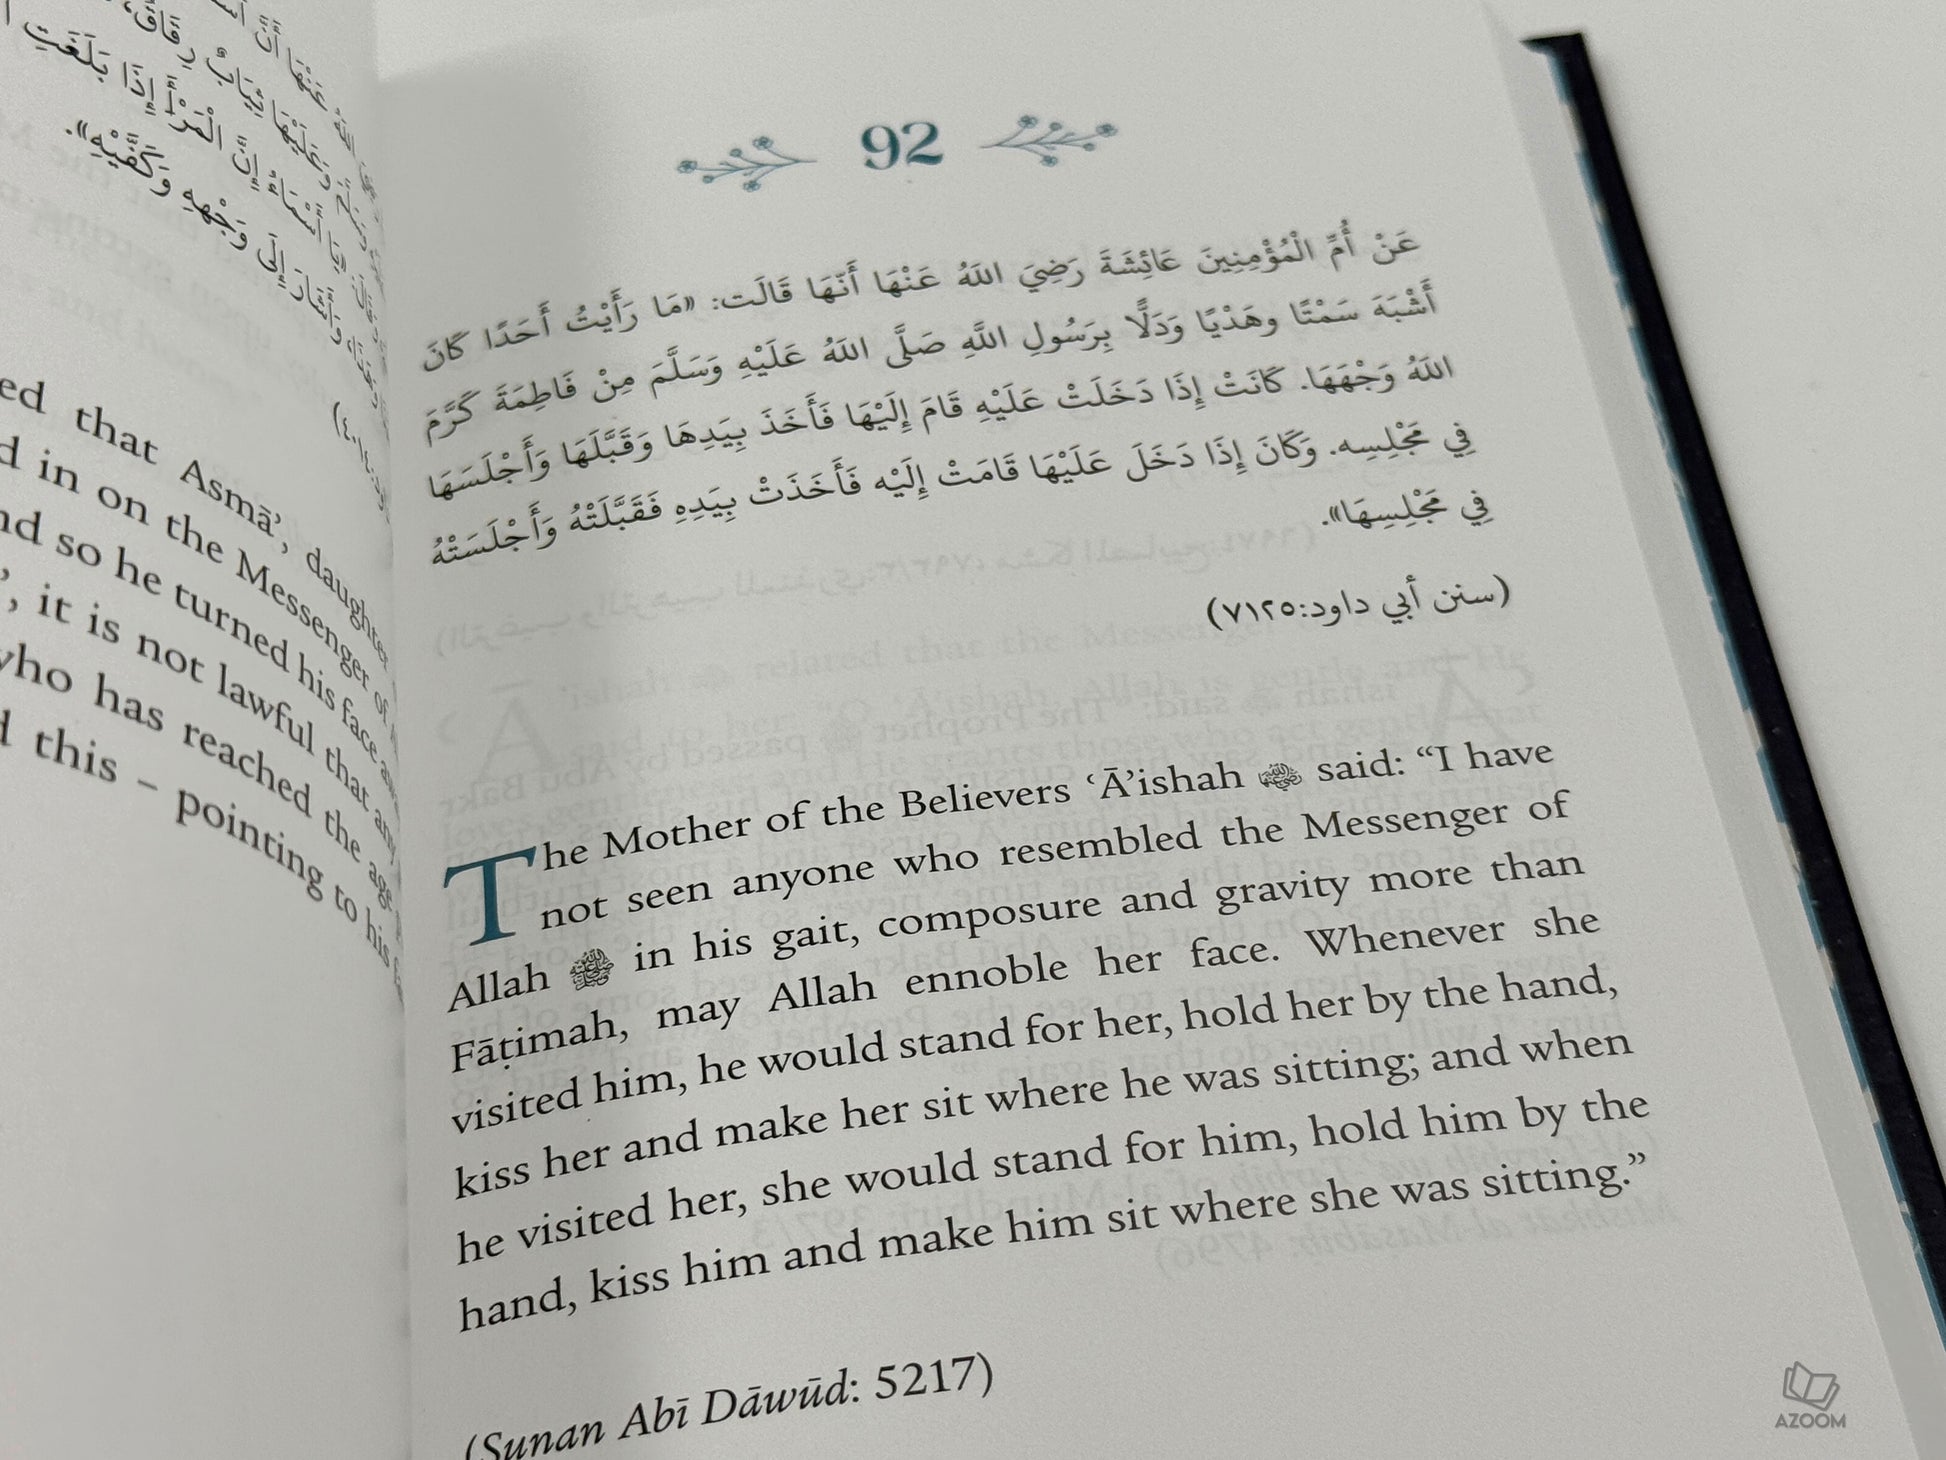 إِنَّ الْمَرْأَةَ إِذَا بَلَغَتِ
وَأَشَارَ إِلَى وَجْهِهِ وَكَفَّيْهِ».
ed that Asmā’, daughter
d in on the Messenger of
nd so he turned his face
’, it is not lawful that any
who has reached the age
d this – pointing to his
92
عَنْ أُمِّ الْمُؤْمِنِينَ عَائِشَةَ رَضِيَ اللهُ عَنْهَا أَنَّهَا قَالَت: «مَا رَأَيْتُ أَحَدًا كَانَ
أَشْبَهَ سَمْتًا وهَدْيًا وَدَلًّا بِرَسُولِ اللَّهِ صَلَّى اللهُ عَلَيْهِ وَسَلَّمَ مِنْ فَاطِمَةَ كَرَّمَ
اللهُ وَجْهَهَا. كَانَتْ إِذَا دَخَلَتْ عَلَيْهِ قَامَ إِلَيْهَا فَأَخَذَ بِيَدِهَا وَقَبَّلَهَا وَأَجْلَسَهَا
فِي مَجْلِسِه. وَكَانَ إِذَا دَخَلَ عَلَيْهَا قَامَتْ إِلَيْه فَأَخَذَتْ بِيَدِهِ فَقَبَّلَتْهُ وَأَجْلَسَتْهُ
فِي مَجْلِسِهَا».
(سنن أبي داود:٧١٢٥)
The Mother of the Believers ‘Ā’ishah ؓ said: “I have
not seen anyone who resembled the Messenger of
Allah ﷺ in his gait, composure and gravity more than
Fāṭimah, may Allah ennoble her face. Whenever she
visited him, he would stand for her, hold her by the hand,
kiss her and make her sit where he was sitting; and when
he visited her, she would stand for him, hold him by the
hand, kiss him and make him sit where she was sitting.”
(Sunan Abī Dāwūd: 5217)
AZOOM